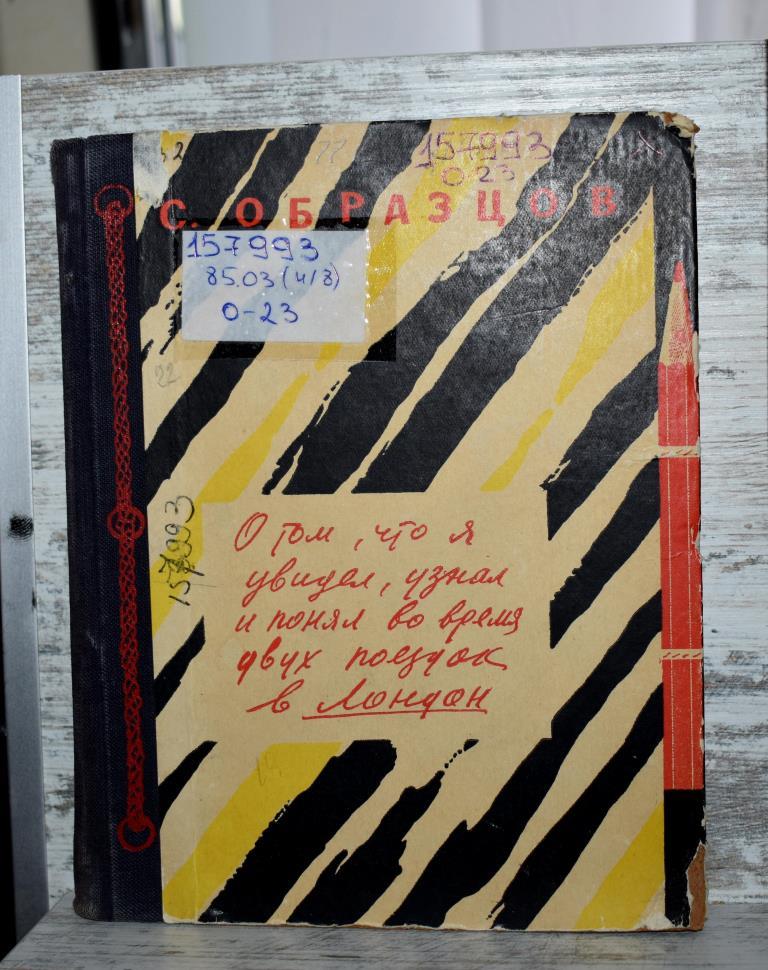 157993
О-23
77
С. ОБРАЗЦОВ
157993
85.03(4/8)
О-23
22
157993
О том, что я
увидел, узнал
и понял во время
двух поездок
в Лондон